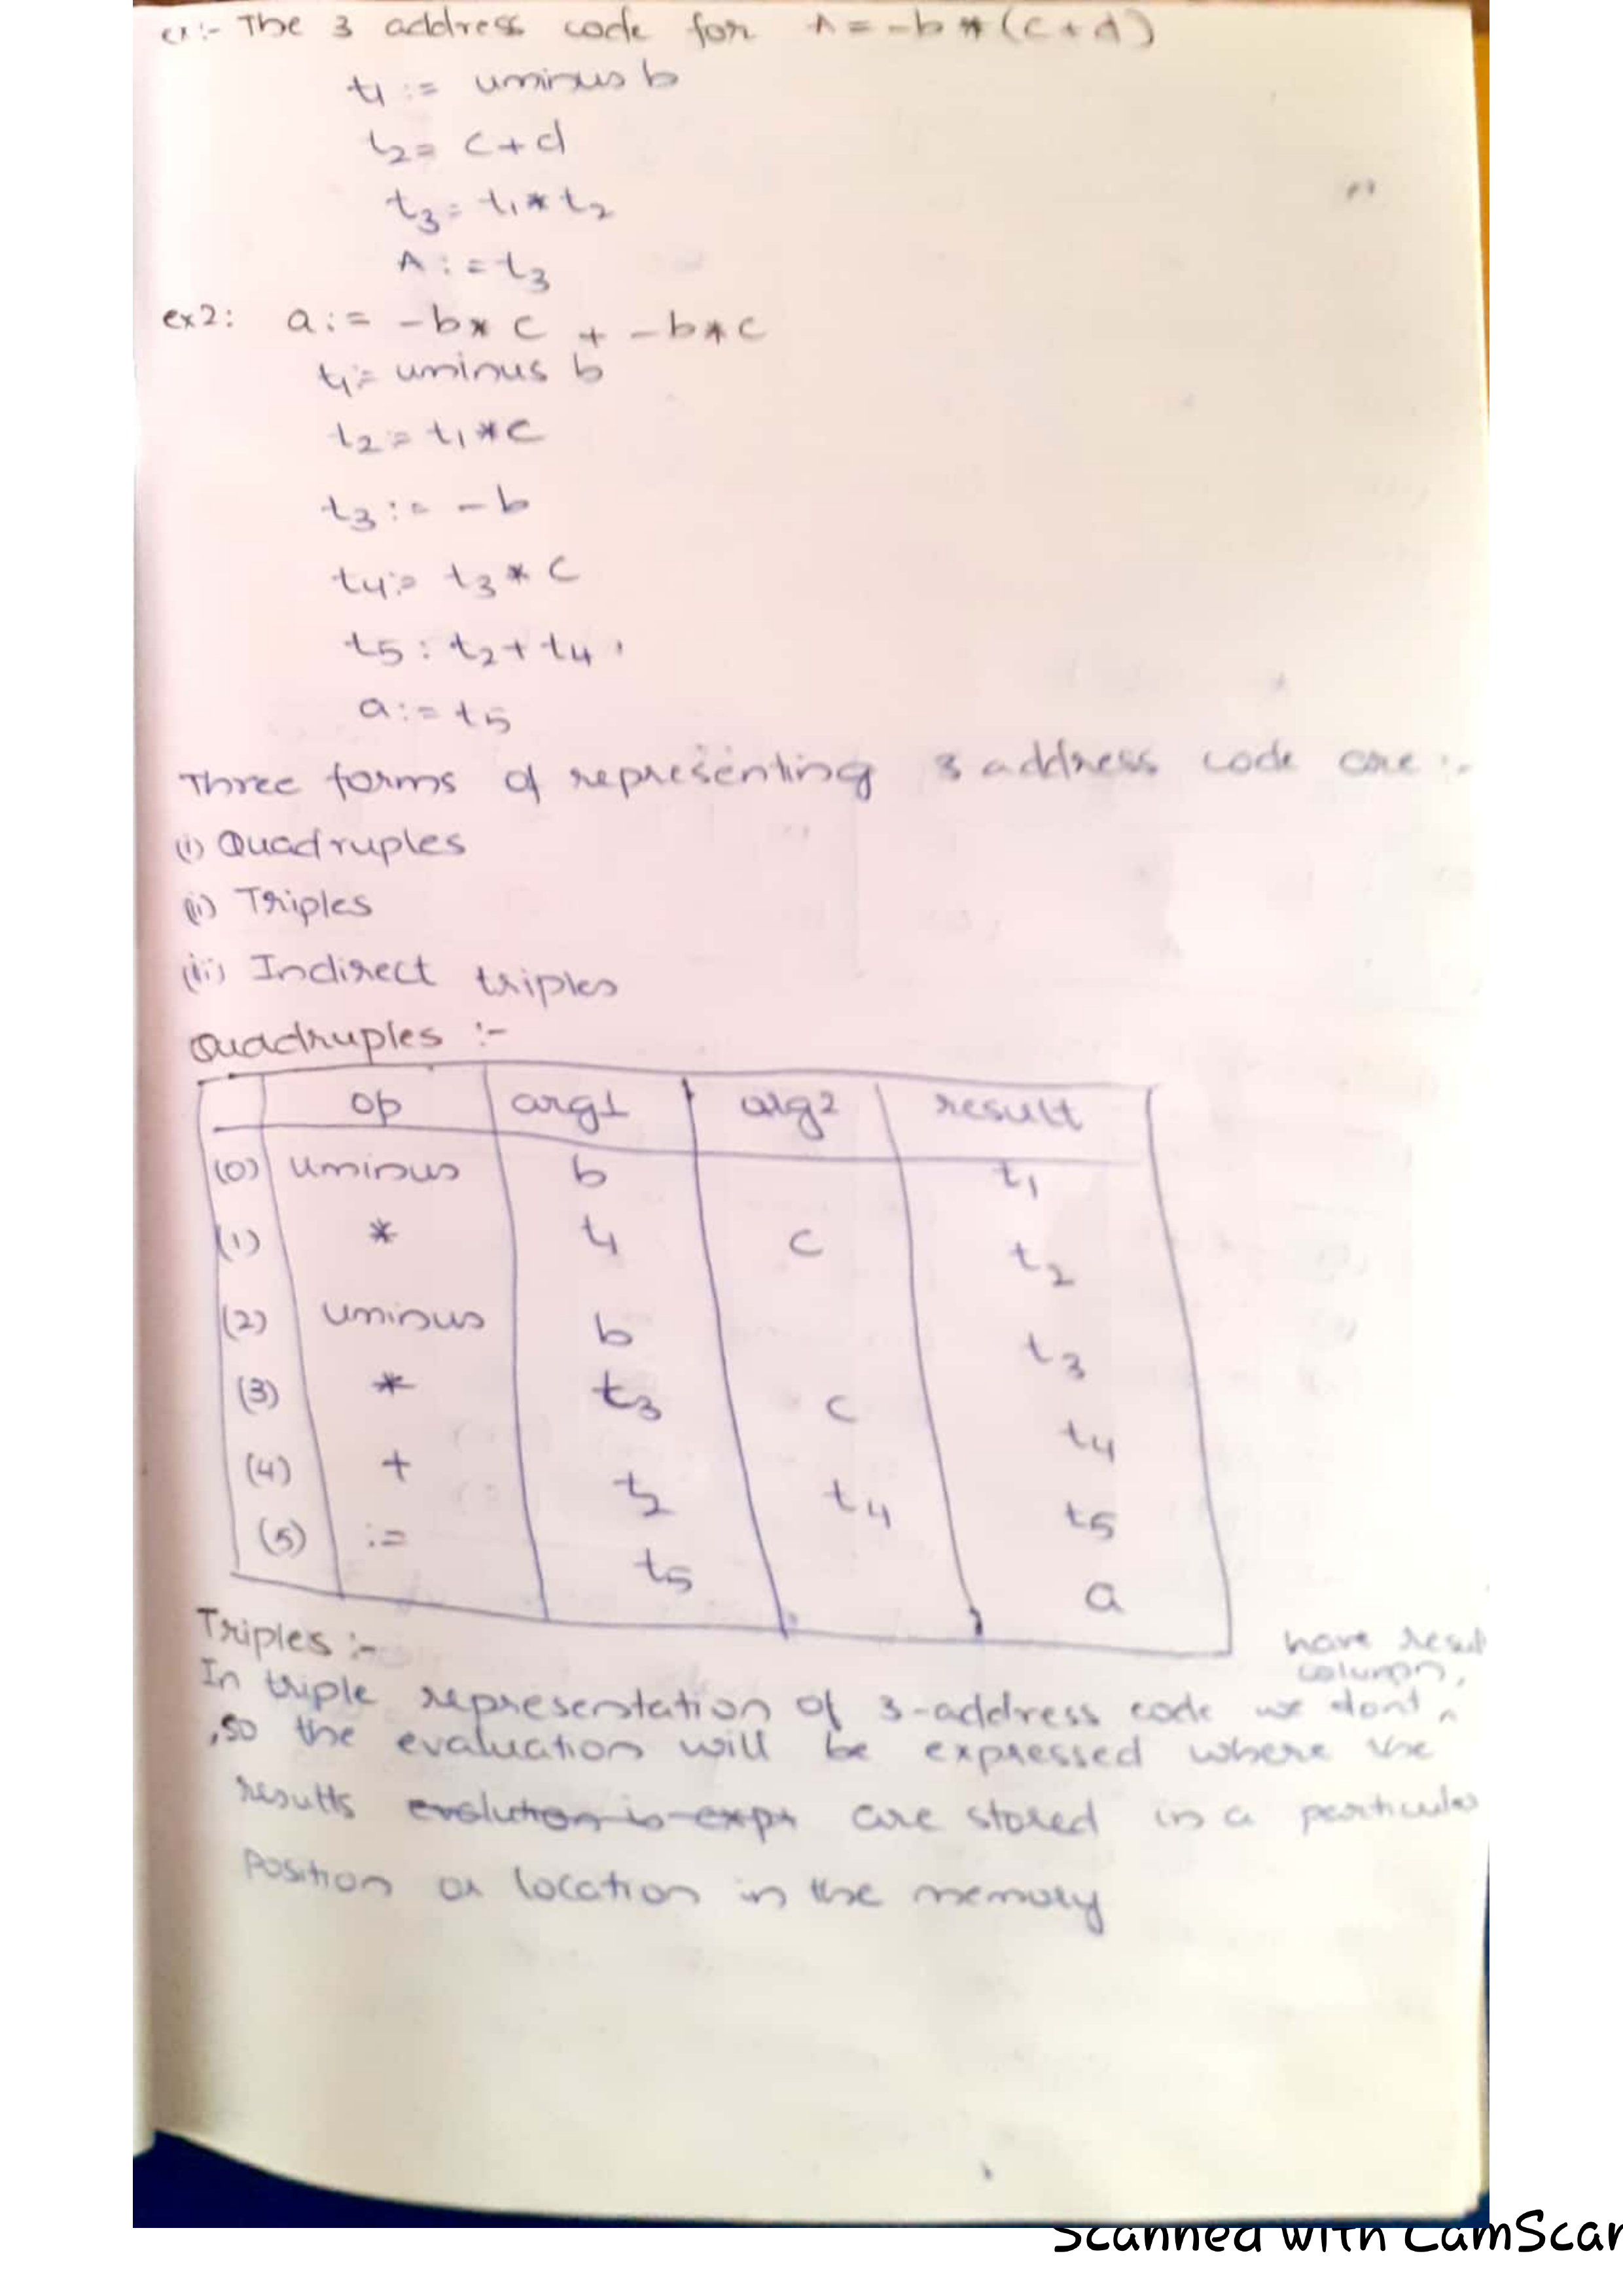 ex:- The 3 address code for A = -b * (c+d)
t1 := uminus b
t2 = c+d
t3 = t1 * t2
A := t3
ex2: a := -b* c + -b*c
t1 := uminus b
t2 := t1 * c
t3 := -b
t4 := t3 * c
t5 : t2 + t4
a := t5
Three forms of representing 3 address code are :-
(i) Quadruples
(ii) Triples
(iii) Indirect triples
Quadruples :-
op arg1 arg2 result
(0) uminus b t1
(1) * t1 c t2
(2) uminus b t3
(3) * t3 c t4
(4) + t2 t4 t5
(5) := t5 a
Triples :-
have result
column,
In triple representation of 3-address code we dont
,so the evaluation will be expressed where the
results evalution is expr are stored in a particular
Position or location in the memory
Scanned with CamScan